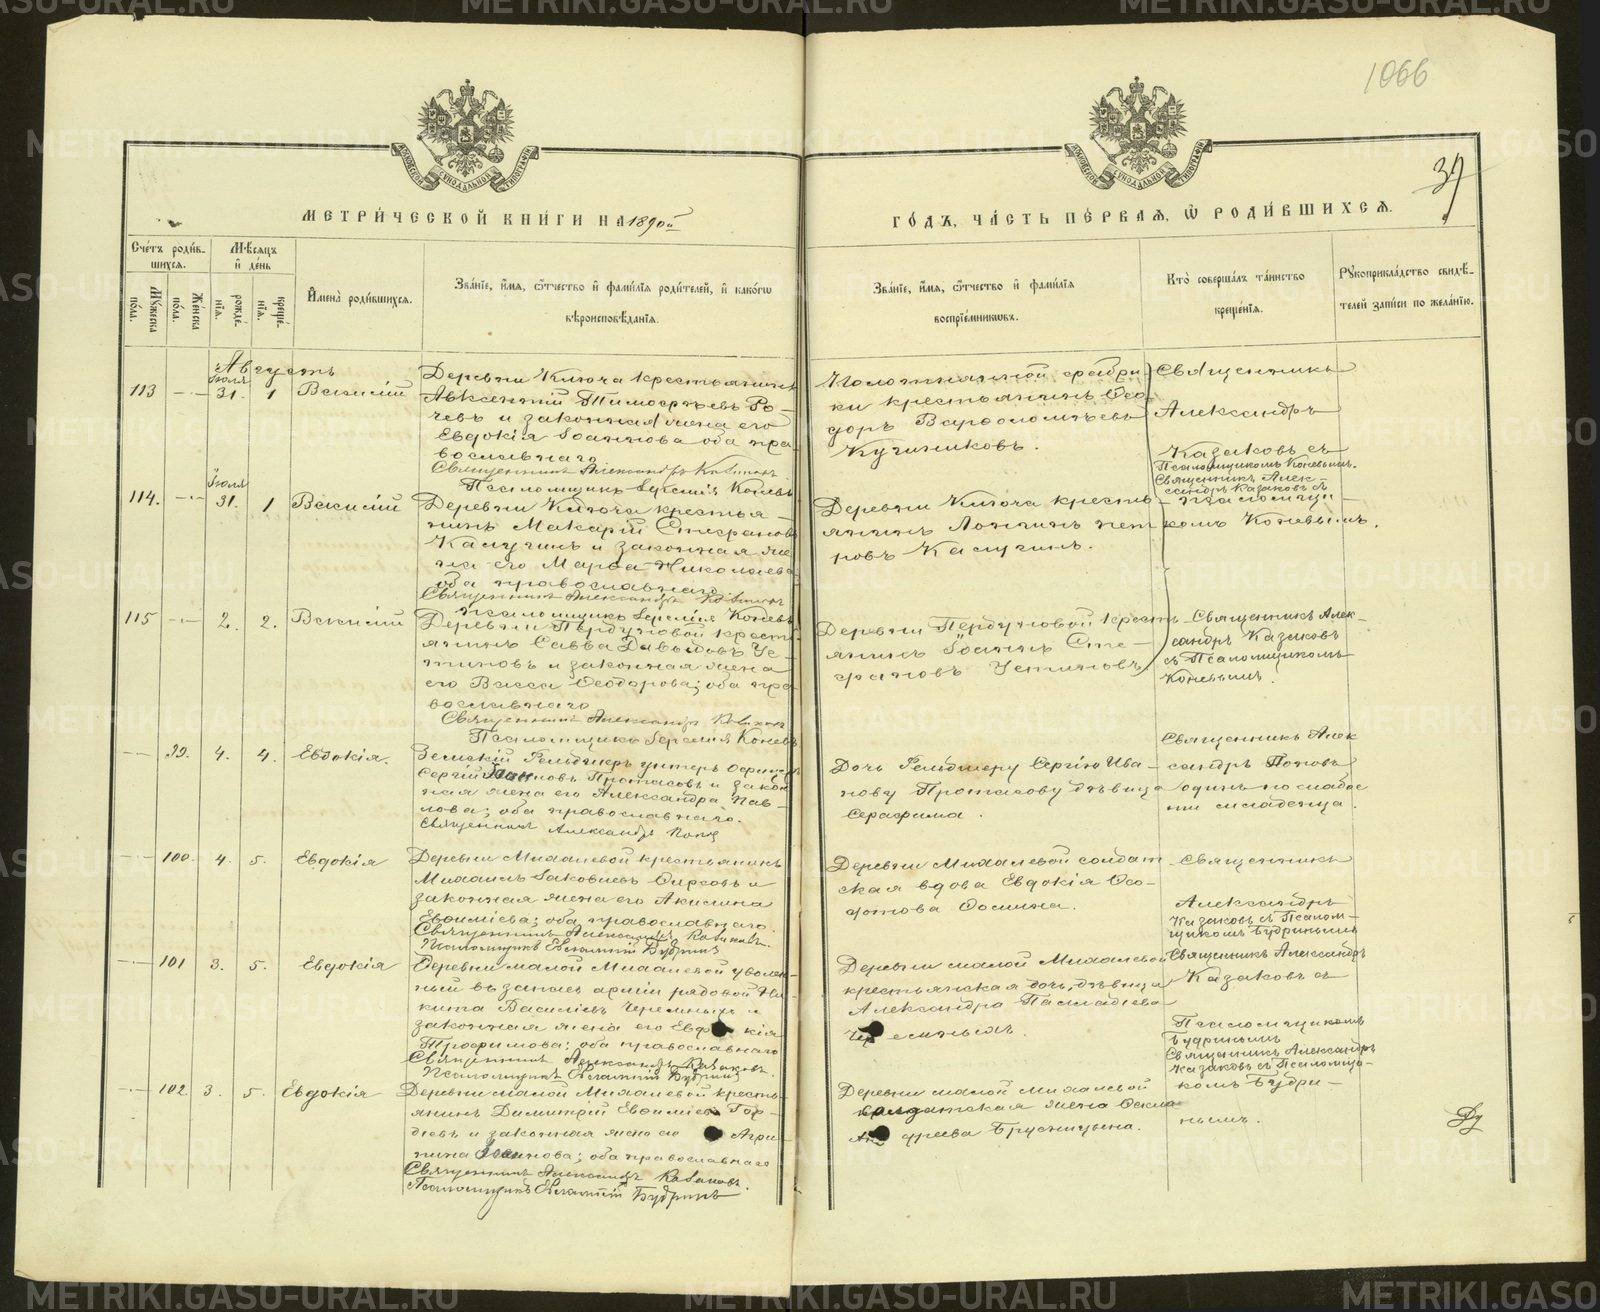 1066
37
МЕТРИ́ЧЕСКОЙ КНИ́ГИ НА 1890й
ГО́ДЪ, ЧА́СТЬ ПЕ́РВАЯ, Ѿ РОДИ́ВШИХСѦ.
Сче́тъ роди́в-
шихсѧ.
Мѣ́сѧцъ
и҆ де́нь
Мꙋ́жеска
по́ла.
Же́нска
по́ла.
рожде́-
нїѧ.
креще́-
нїѧ.
И҆мена̀ роди́вшихсѧ.
Зва́нїе, и҆́мѧ, ѻ҆́тчество и҆ фами́лїѧ роди́телей, и҆ како́гѡ
вѣроисповѣ́данїѧ.
Зва́нїе, и҆́мѧ, ѻ҆́тчество и҆ фами́лїѧ
воспрїе́мникѡвъ.
Кто̀ соверша́лъ та́инство
креще́нїѧ.
Рꙋкоприкла́дство свидѣ́-
телей за́писи по жела́нїю.
Августъ
113 — Іюля 31. 1 Василій
Деревни Ключа крестьянинъ
Авксентій Тимофѣевъ Ро-
чевъ и законная жена его
Евдокія Іоаннова оба пра-
вославнаго
Священникъ Александръ Казаковъ
Псаломщикъ Іеремія Коневъ
крестьянинъ Ѳео-
доръ Варѳоломѣевъ
Священникъ
Александръ
Казаковъ съ
Псаломщикомъ Коневымъ.
114. — Іюля 31. 1 Василій
Деревни Ключа крестья-
нинъ Макарій Стефановъ
Калугинъ и законная же-
на его Марѳа Николаева
оба православнаго
Священникъ Александръ Казаковъ
Псаломщикъ Іеремія Коневъ
Деревни Ключа кресть-
янинъ Логгинъ Пет-
ровъ Калугинъ.
Священникъ Алек-
сандръ Казаковъ съ
псаломщи-
комъ Коневымъ.
115 — 2. 2. Василій
крестья-
янинъ Савва Давыдовъ Ус-
тиновъ и законная жена
его Васса Ѳеодорова; оба пра-
вославнаго
Священникъ Александръ Казаковъ
Псаломщикъ Іеремія Коневъ
крестья-
янинъ Іоаннъ Сте-
фановъ Устиновъ
Священникъ Алек-
сандръ Казаковъ
съ Псаломщикомъ
Коневымъ.
— 99. 4. 4. Евдокія.
Земскій Фельдшеръ унтеръ офицеръ
Сергій Іоанновъ Протасовъ и закон-
ная жена его Александра Пав-
лова; оба православнаго.
Священникъ Александръ Поповъ
Дочь Фельдшеру Сергію Ива-
нову Протасову дѣвица
Серафима.
Священникъ Алек
сандръ Поповъ
одинъ по слабос
ти младенца.
— 100. 4. 5. Евдокія
Деревни Михалевой крестьянинъ
Михаилъ Іаковлевъ Фирсовъ и
законная жена его Акилина
Евѳиміева; оба православнаго.
Священникъ Александръ Казаковъ.
Псаломщикъ Евлампій Будринъ
Деревни Михалевой солдат
ская вдова Евдокія Ѳео-
Ѳомина.
Священникъ
Александръ
Казаковъ съ Псалом-
щикомъ Будринымъ
— 101 3. 5. Евдокія
Деревни малой Михалевой уволен-
ный въ запасъ арміи рядовой Ни-
кита Василіевъ Черемныхъ и
законная жена его Евдокія
Трофимова; оба православнаго
Священникъ Александръ Казаковъ.
Псаломщикъ Евлампій Будринъ
Деревни малой Михалевой
крестьянская дочь, дѣвица
Александра Палладіева
Черемныхъ.
Священникъ Александръ
Казаковъ съ
Псаломщикомъ
Будринымъ
— 102 3. 5. Евдокія
Деревни малой Михалевой кресть-
янинъ Димитрій Евѳиміевъ Гор-
дѣевъ и законная жена его Агри-
пина Іоаннова; оба православнаго
Священникъ Александръ Казаковъ.
Псаломщикъ Евлампій Будринъ
Деревни малой Михалевой
солдатская жена
Брусницына.
Священникъ Александръ
Казаковъ съ Псаломщи-
комъ Будри-
нымъ.
METRIKI.GASO-URAL.RU